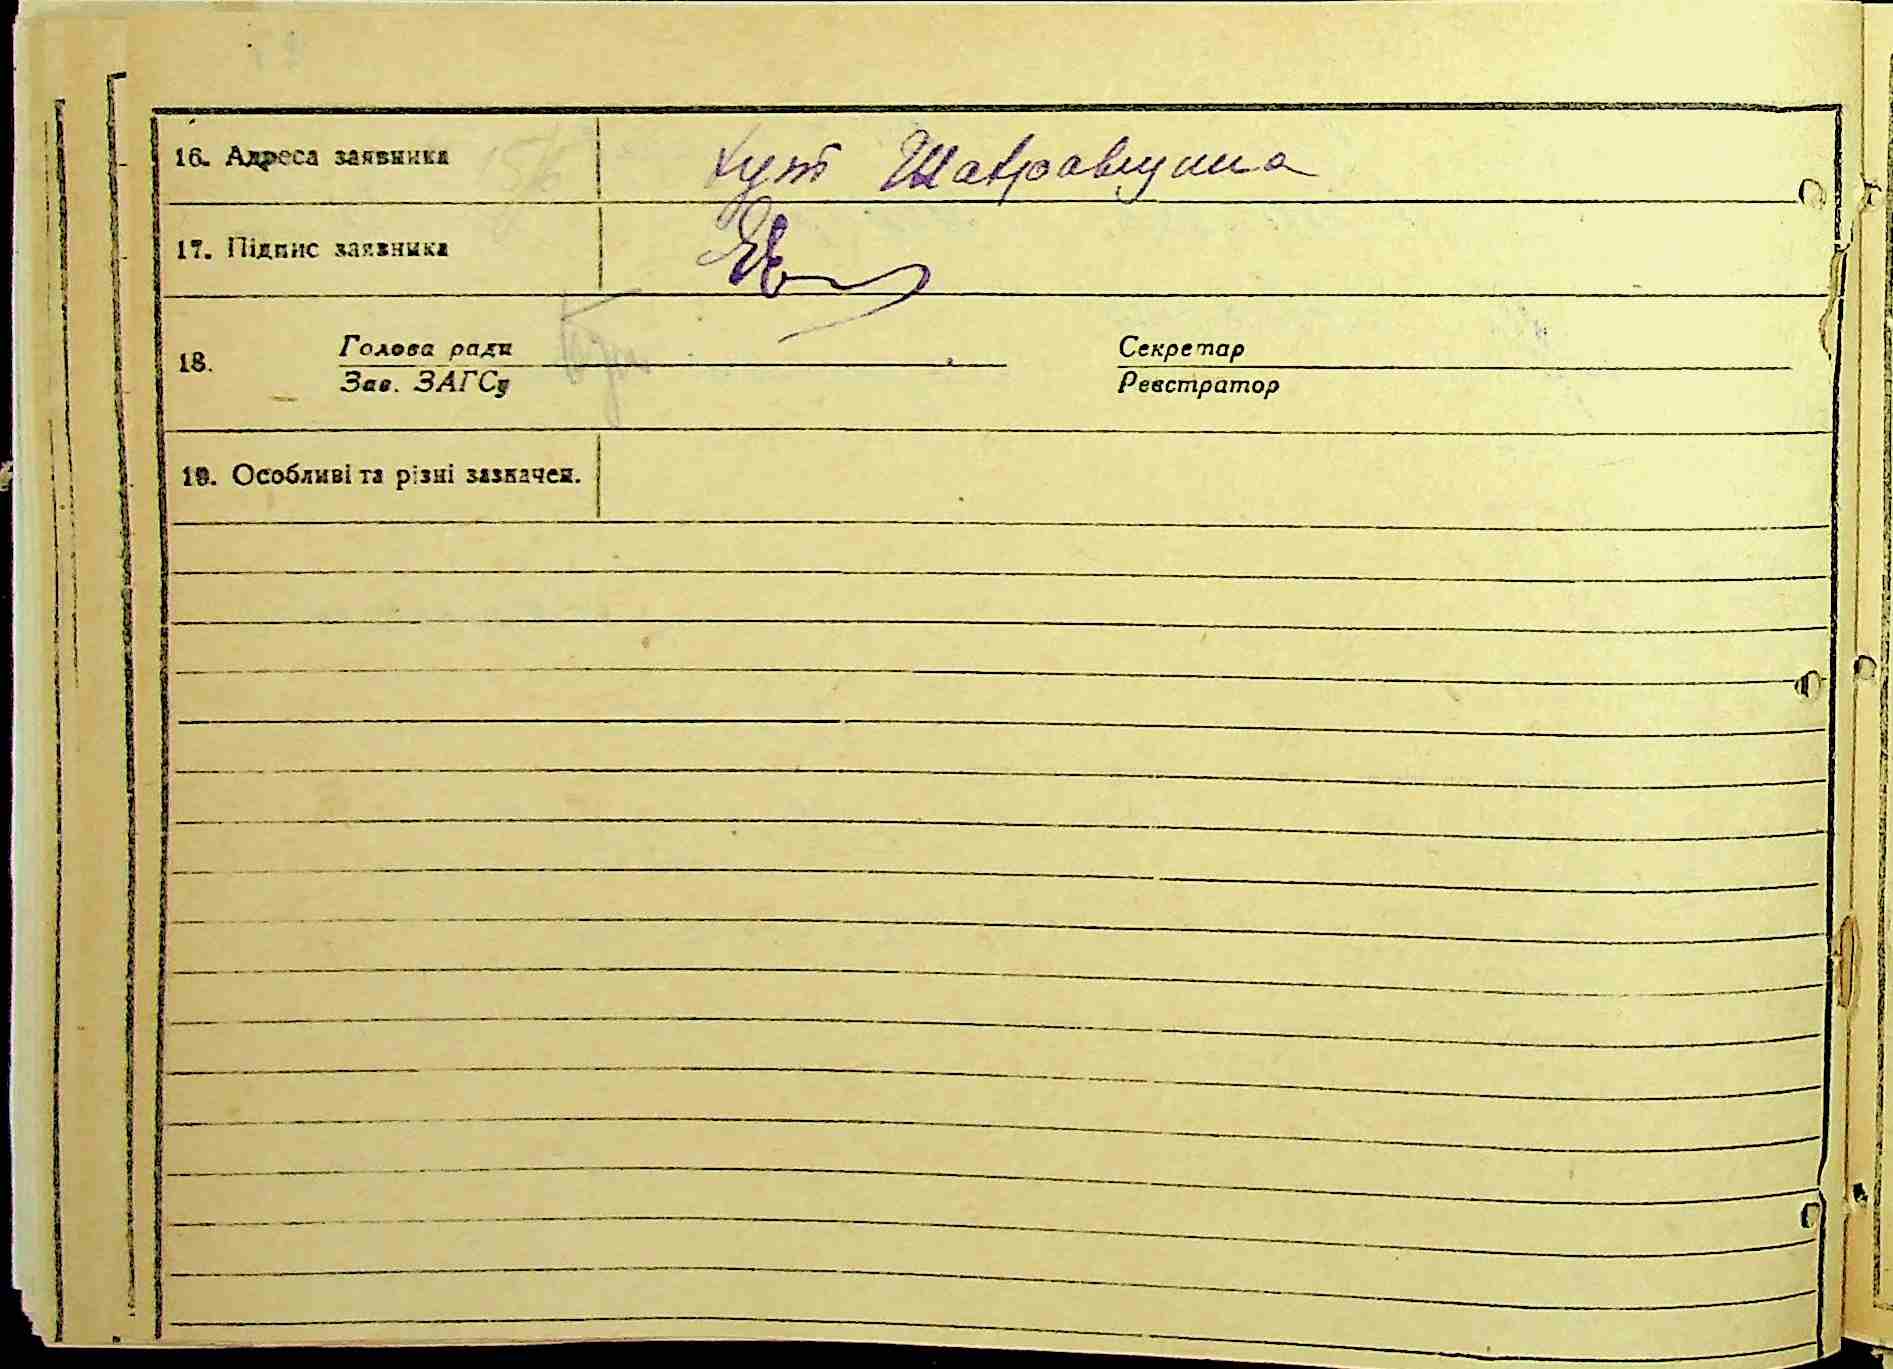 16. Адреса заявника кут Шавравщина
17. Підпис заявника
18. Голова ради Секретар
Зав. ЗАГСу Реєстратор
19. Особливі та різні зазначен.